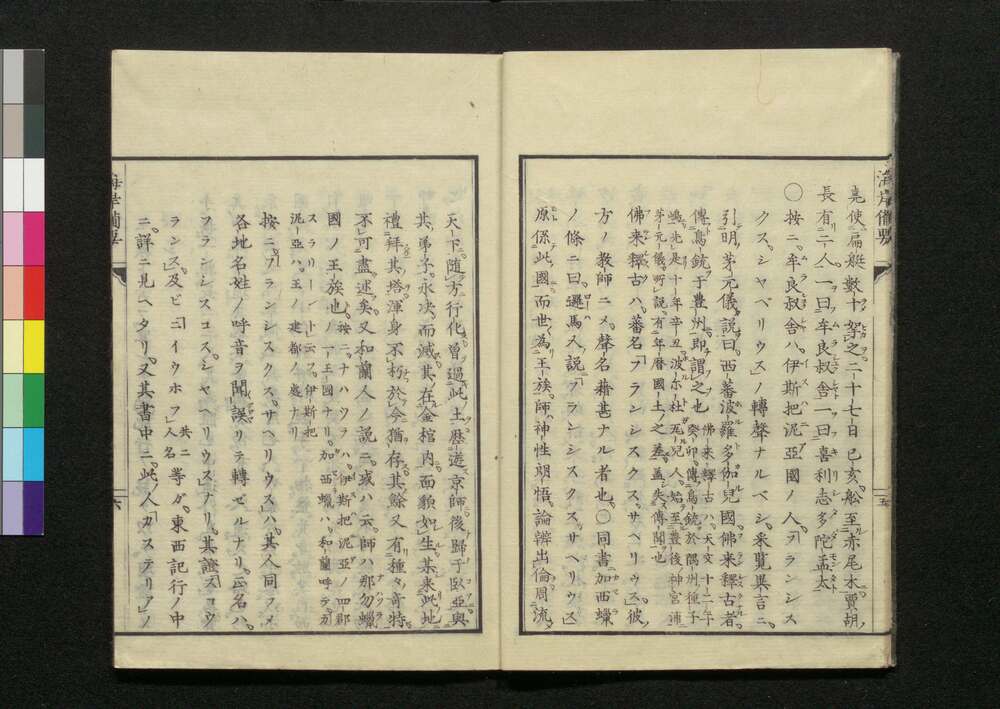 海岸備要
五
尭使扁艇數十拏之二十七日己亥舩至赤尾木賈胡
長有二人一曰牟良叔舎一曰喜利志多陀孟太
〇按ニ牟良叔舎ハ伊斯把泥亞國ノ人「フランシス
クス。シャベリウス」ノ轉聲ナルベシ。采覧異言ニ
引明。茅元儀說曰西蕃波羅多伽兒國。佛来釋古者。
傳鳥銃于豊州即謂之也
佛来釋古ハ天文十二年
癸卯傳鳥銃於隅州種子
嶋先是十年辛丑波尓杜瓦兒人始至豊後神宮浦
茅元儀所說有年暦國土之差盖失傳聞也
佛来釋古ハ蕃名「フランシスクス。サヘリウス」彼
方ノ教師ニメ聲名藉甚ナル者也〇同書加西蠟
ノ條ニ曰邏馬人說「フランシスクス。サヘリウス」
原係此國而世為王族師神性朗悟論辨出倫周流
天下随方行化曽過此土歷遊京師後歸于臥亞與
其弟子永决而滅其在金棺内而貌如生某来此地
禮拜其塔渾身不朽於今猶存其餘又有種々竒特
不可盡述矣又和蘭人ノ說ニ或ハ云師ハ那勿蠟
國ノ王族也
按ニナハウラハ伊斯把泥亞ノ四郡
ノ一王國ナリ加西蠟ハ和蘭呼テカ
スラリーント云フ伊斯把
泥亞ハ王ノ建都ノ處ナリ
按ニ「フランシスクス。サヘリウス」ハ其人同フメ
各地名姓ノ呼音ヲ聞誤リテ轉ゼルナリ云名ハ
フランシスコス。シャヘリウスナリ。其證「スコウ
ランス」及ビ「ニイウホフ」
共ニ
人名
等ガ。東西記行ノ中
ニ詳ニ見ヘタリ又其書中ニ此人「カステリア」ノ
六